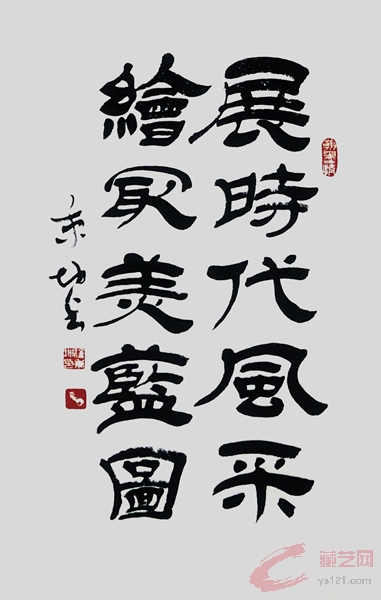 展時代風采
繪最美藍圖
藏艺网
ys121.com